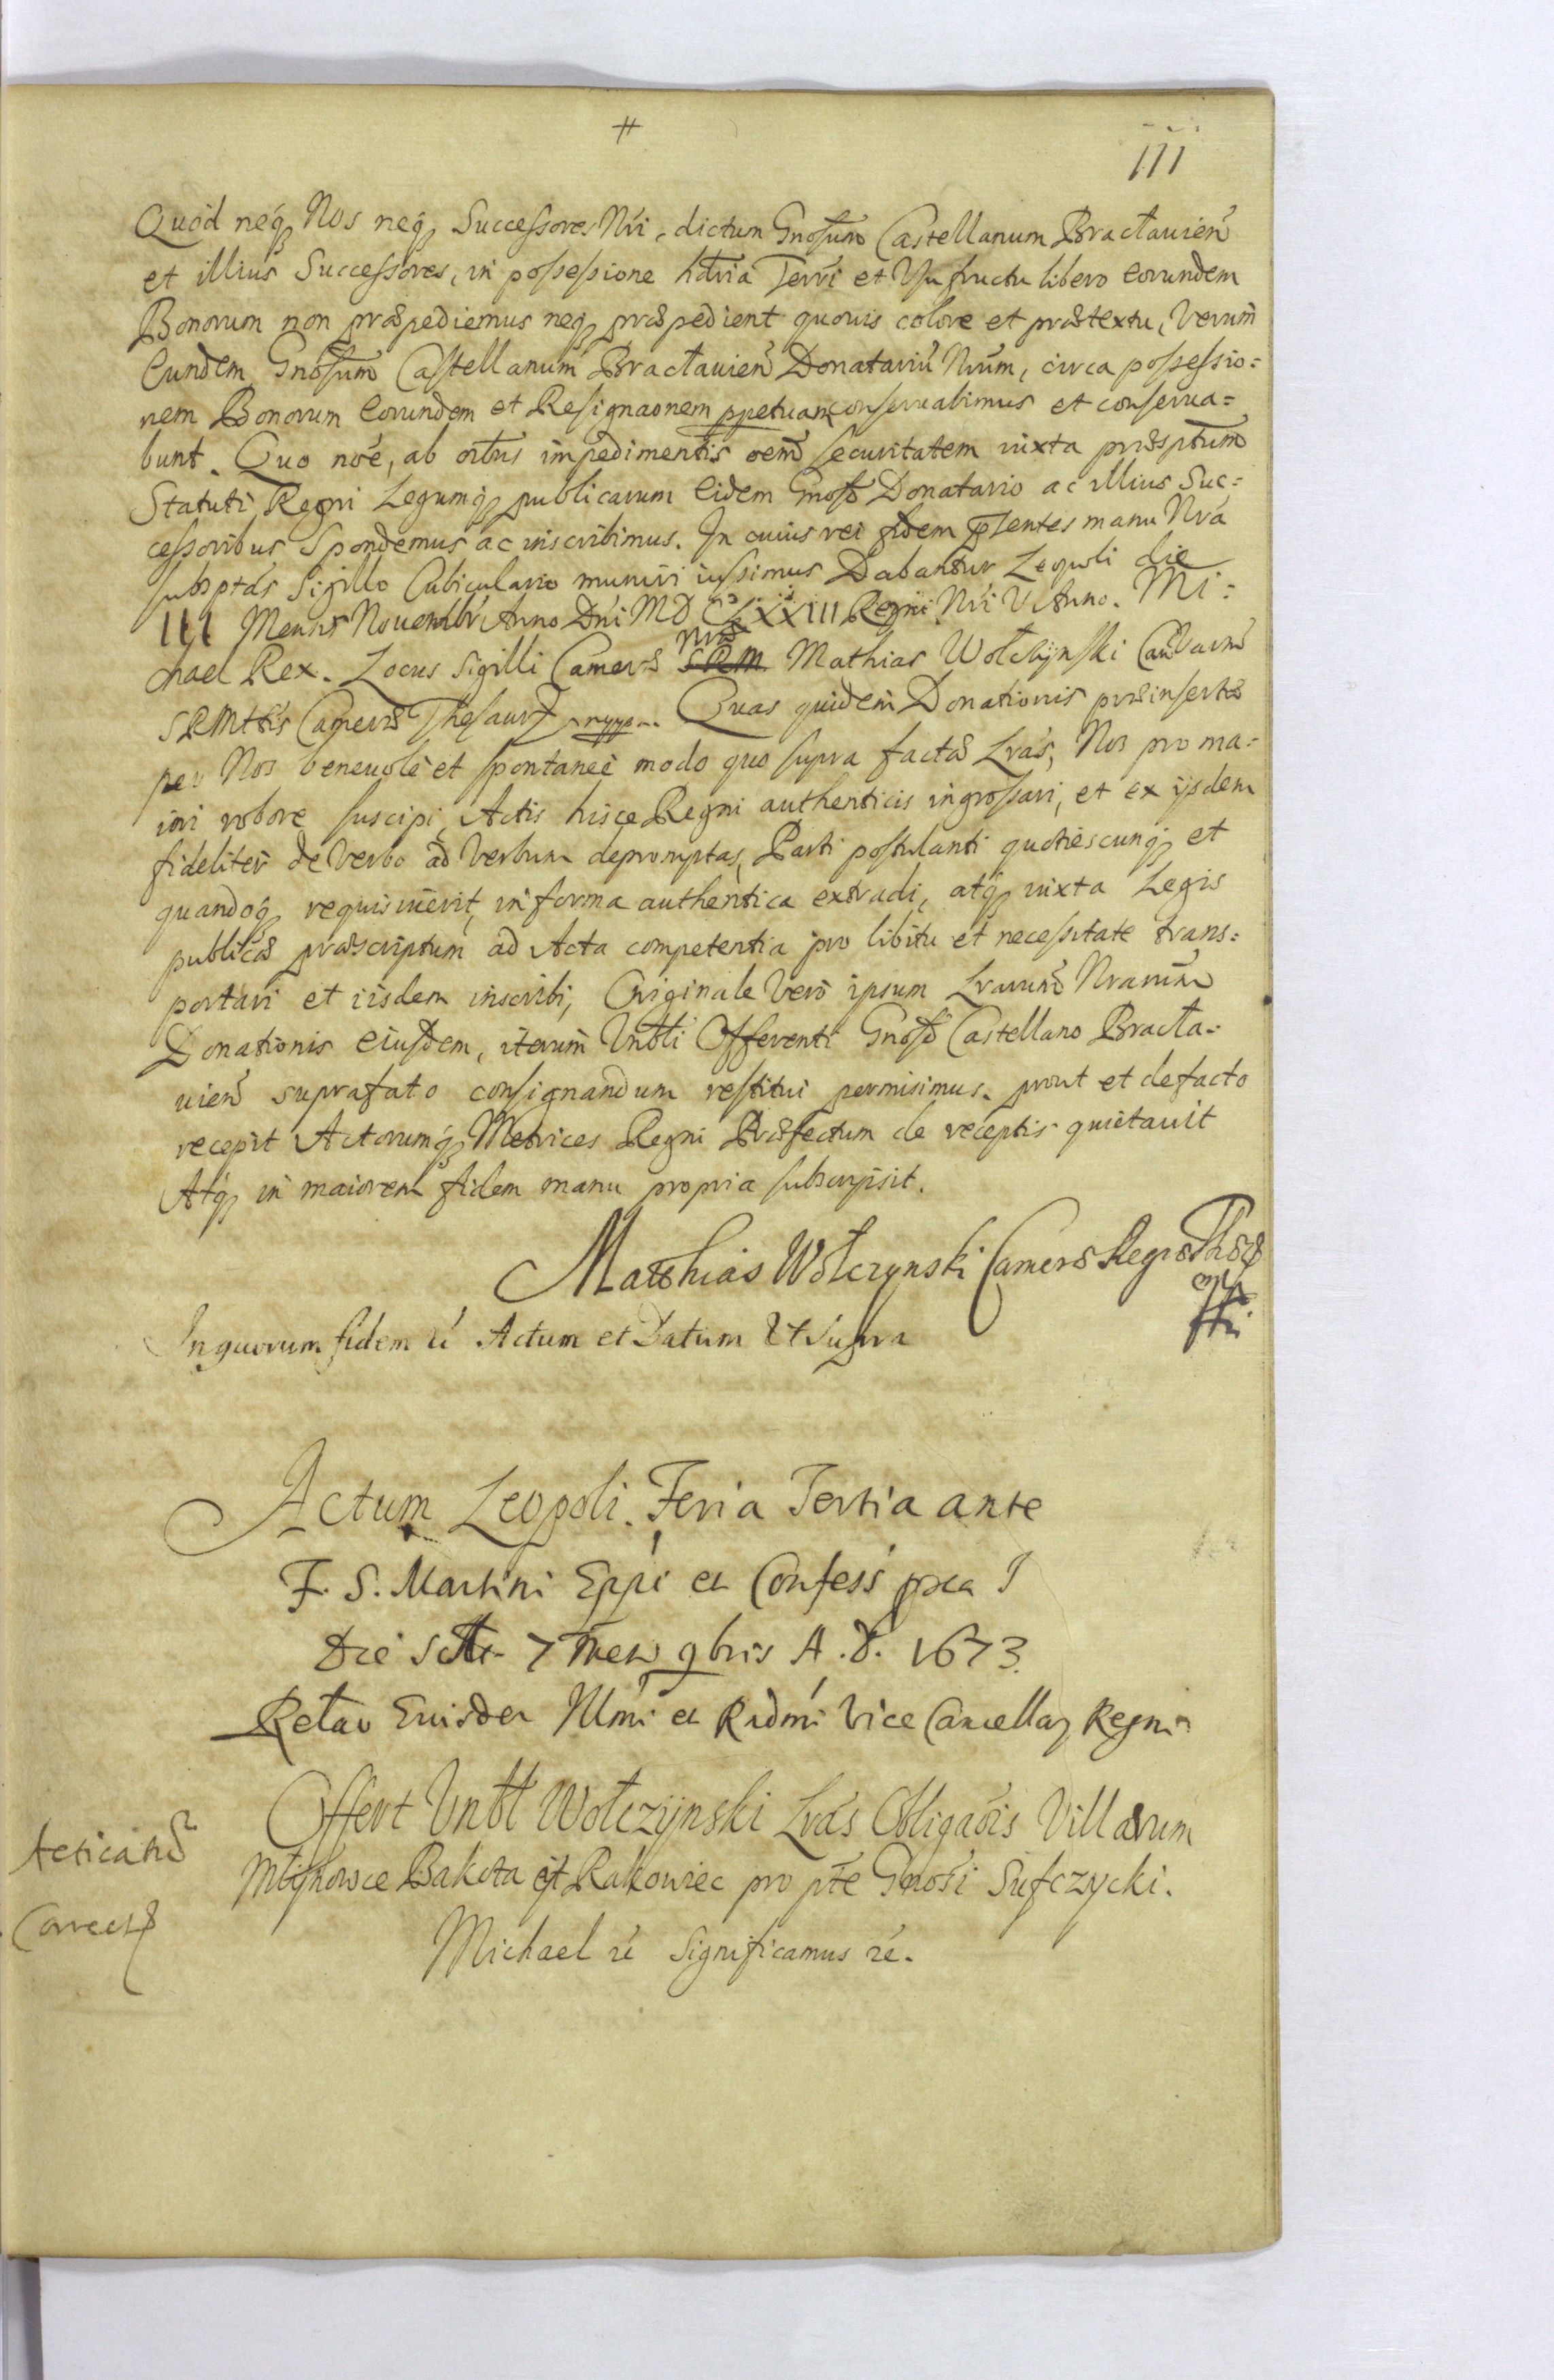 #
111
Quòd neq₃ Nos neq₃ Successores Nri, dictum Gnosum Castellanum Bracłauien
et illius Successores, in possessione hdria Terri et Vsufructu libero eorundem
Bonorum non præpediemus neq₃ præpedient quouis colore et prætextu, verum
eundem Gnosum Castellanum Bracłauien Donatariu Nrum, circa possessio=
nem Bonorum eorundem et Resignaonem ppetuam conseruabimus et conserua=
bunt. Quo noe, ab oibus impedimentis oem securitatem iuxta præsptum
Statuti Regni Legumq₃ publicarum eidem Gnoso Donatario ac illius Suc=
cessoribus Spondemus ac inscribimus. In cuius rei fidem pntes manu Nra
subsptas Sigillo Cubiculario muniri iussimus Dabantur Leopoli die
III Mensis Nouembr Anno Dni MDCLXXIII Regni Nri V Anno. Mi=
chael Rex. Locus Sigilli Cameræ Nræ Mathias Wołczynski
SRMttis Cameræ Thesaur mppa. Quas quidem Donationis præinsertæ
per Nos beneuolè et spontaneè modo quo supra factæ Lras, Nos pro ma=
iori robore suscipi, Actis hisce Regni authenticis ingrossari, et ex ijsdem
fideliter de verbo ad verbum depromptas, Parti postulanti quotiescunq₃ et
quandoq₃ requisiuerit, in forma authentica extradi, atq₃ iuxta Legis
publicæ præscriptum ad Acta competentia pro libitu et necessitate trans=
portari et iisdem inscribi, Originale vero ipsum Lrarum Nrarum
Donationis eiusdem, iterum Vnbli Offerenti Gnoso Castellano Bracła=
uien suprafato consignandum restitui permisimus. prout et defacto
recepit Actorumq₃ Metrices Regni Præfectum de receptis quietauit
Atq₃ in maiorem fidem manu propria subscripsit.
Matthias Wołczynski Cameræ Regiæ
In quorum fidem rć Actum et Datum Vt supra
Actum Leopoli. Feria Tertia ante
F. S. Martini Eppi et Confess pxa
Die sctt. 7 Mens 9bris A. D. 1673.
Relao Eiusdem Illmi et Rndmi Vice Cancellar Regni
Offert Vnbl Wołczÿnski Lras Obligaois Villarum
Młÿnowce Bakota et Rakowiec pro pte Gnosi Sufczycki.
Michael rć Significamus rć.
Correct